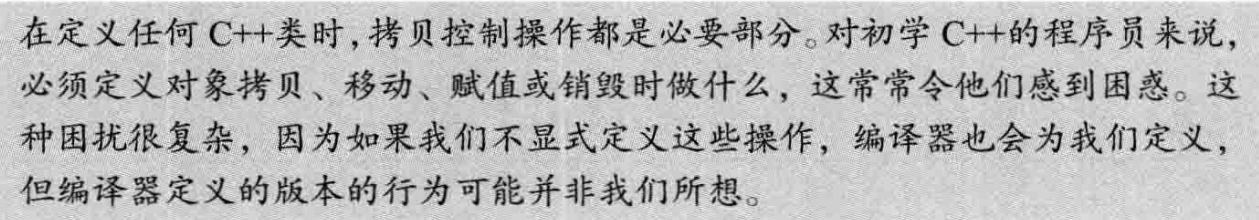 在定义任何 C++类时,拷贝控制操作都是必要部分。对初学 C++的程序员来说,
必须定义对象拷贝、移动、赋值或销毁时做什么，这常常令他们感到困惑。这
种困扰很复杂，因为如果我们不显式定义这些操作，编译器也会为我们定义，
但编译器定义的版本的行为可能并非我们所想。